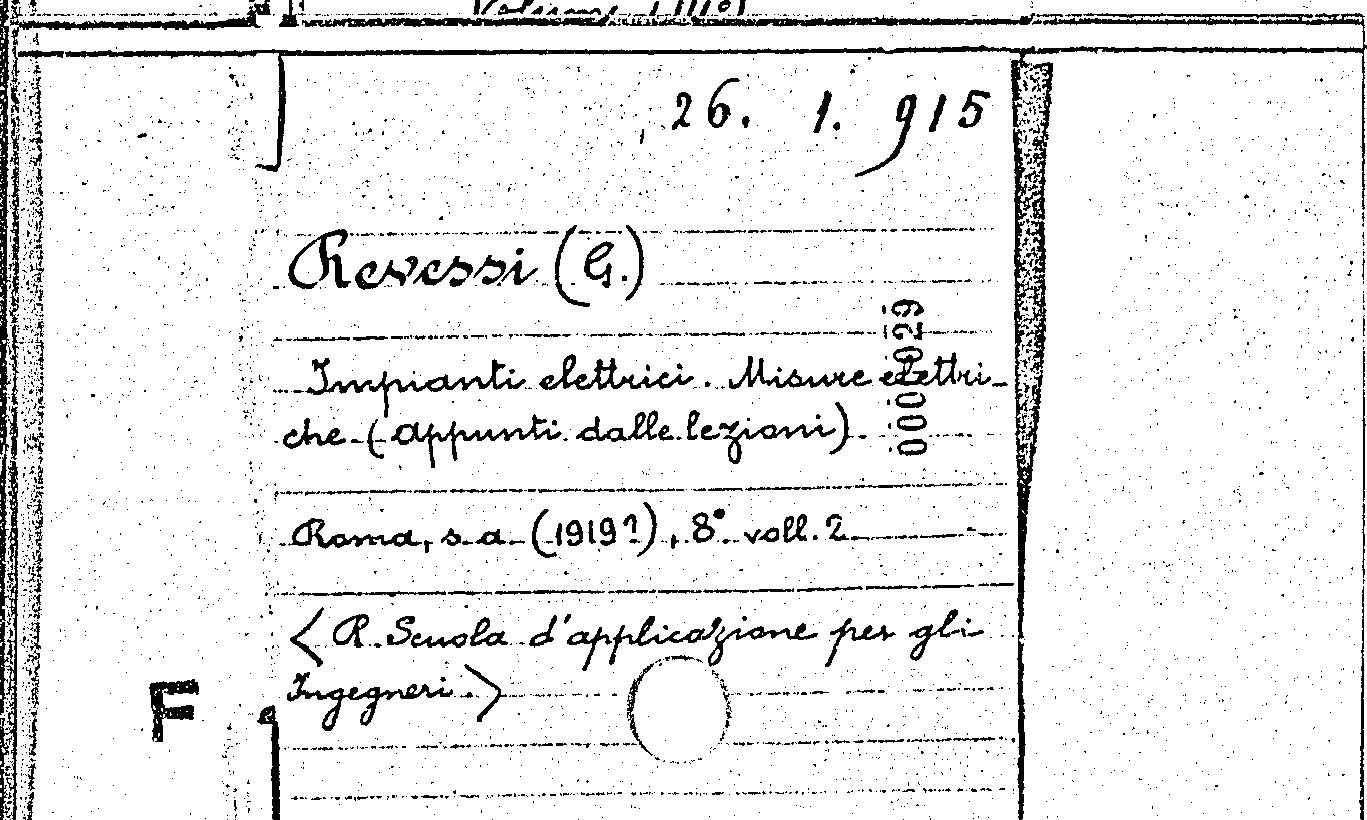 26. 1. 915
Revessi (G.)
Impianti elettrici. Misure elettri-
che (Appunti dalle lezioni)
Roma, s. a. (1919?), 8° voll. 2
< R. Scuola d'applicazione per gli
Ingegneri. >
F